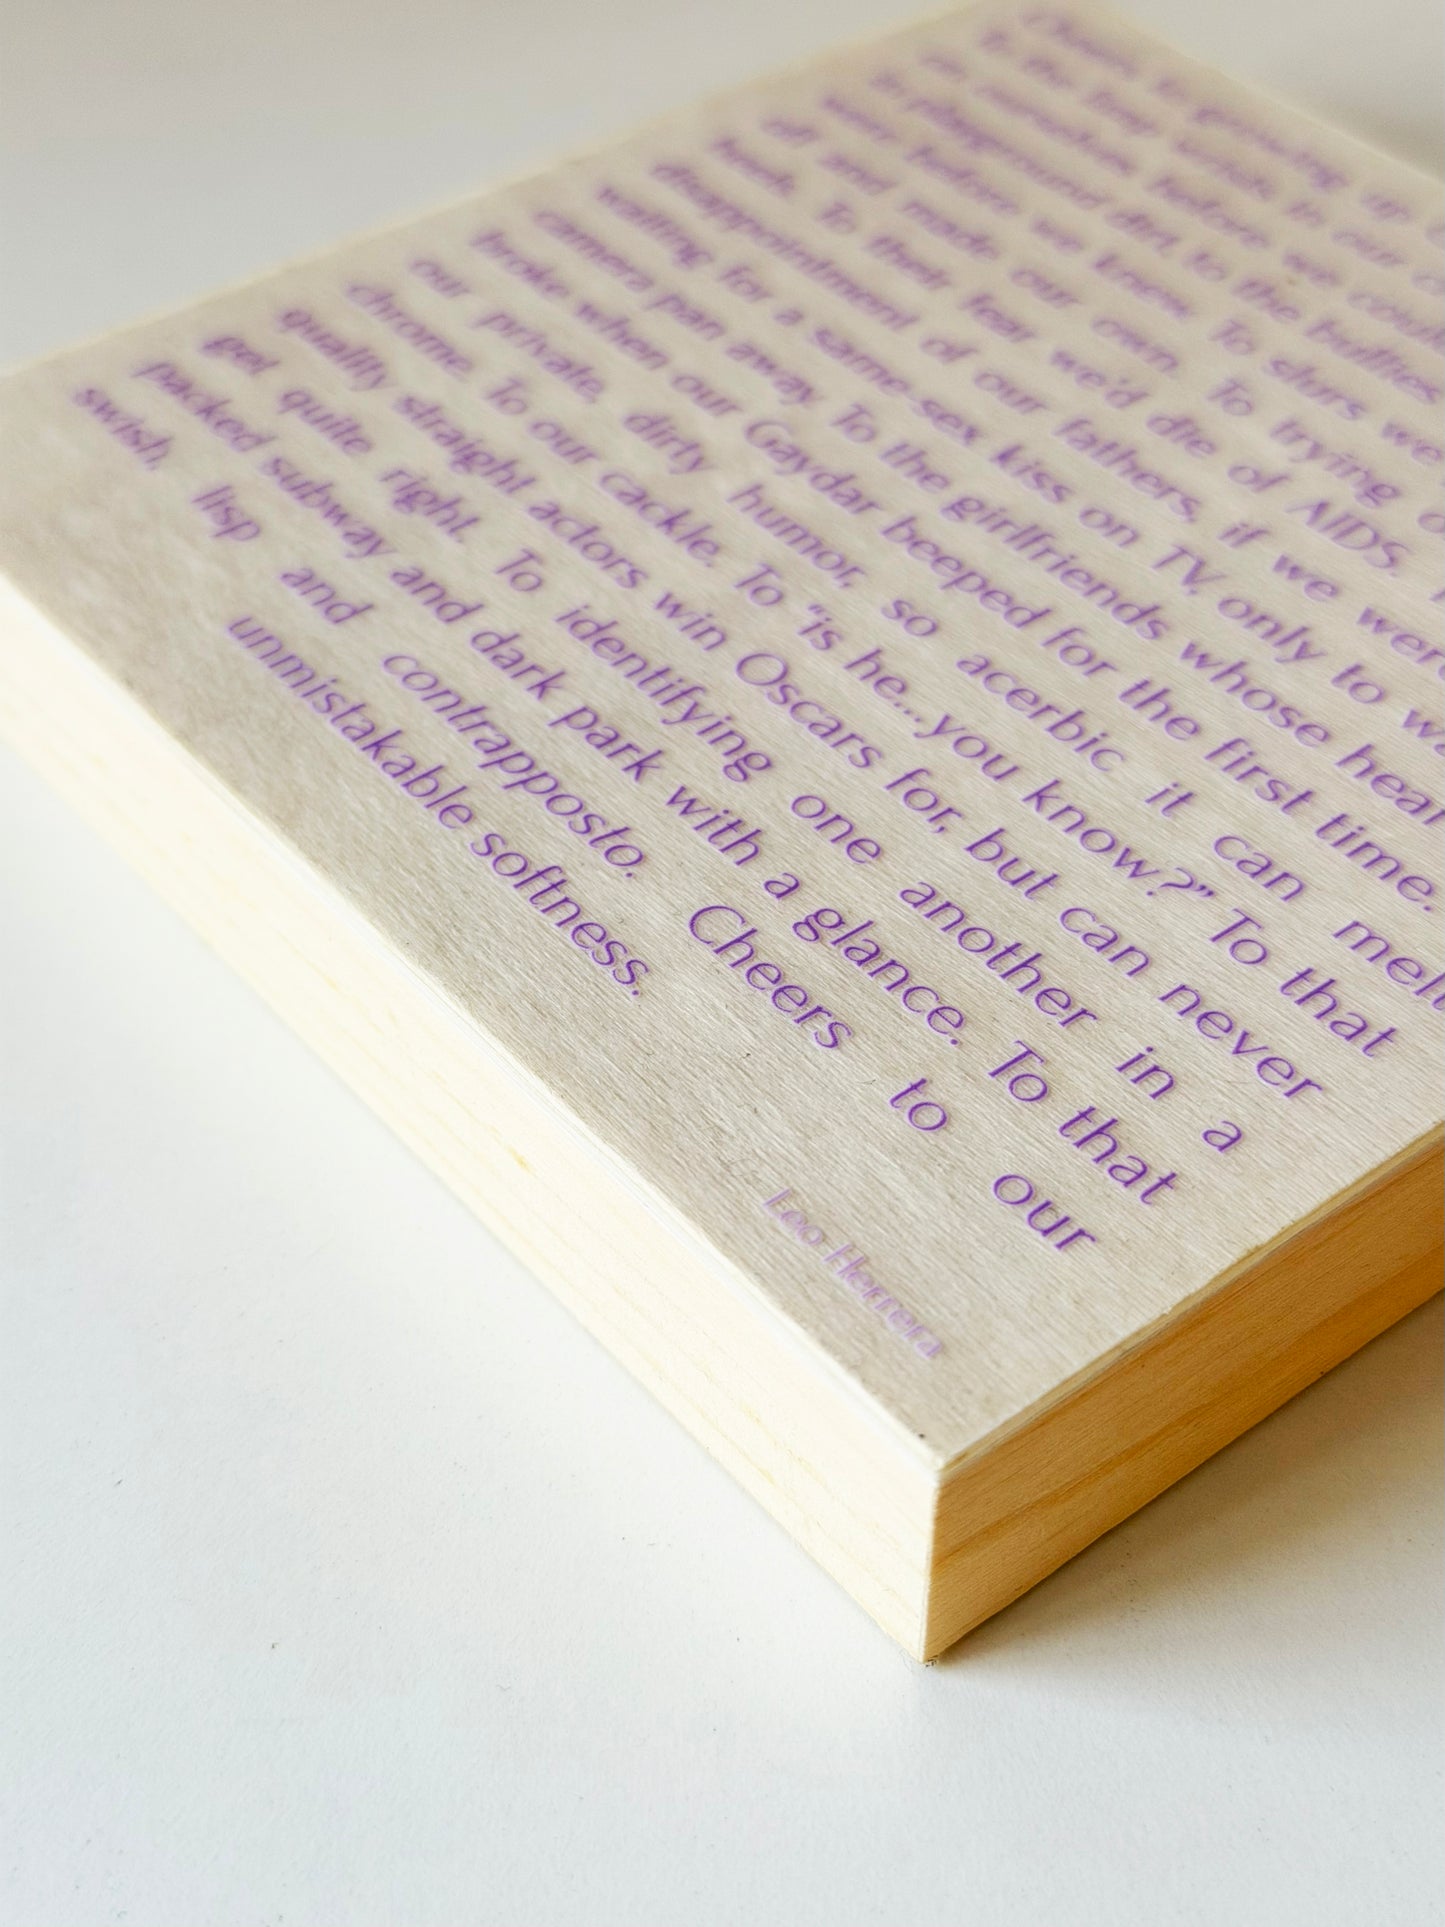 Cheers to growing up
To the wrists in our
ourselves before we could
in playground dirt, to the bullies
were before we knew. To slurs we
off and made our own. To trying
heads. To their fear we'd die of AIDS.
disappointment of our fathers, if we were
waiting for a same-sex kiss on TV, only to
camera pan away. To the girlfriends whose hear
broke when our Gaydar beeped for the first time.
our private, dirty humor, so acerbic it can melt
chrome. To our cackle. To “is he...you know?” To that
quality straight actors win Oscars for, but can never
get quite right. To identifying one another in a
packed subway and dark park with a glance. To that
swish, lisp and contrapposto. Cheers to our
unmistakable softness.
Leo Herrera